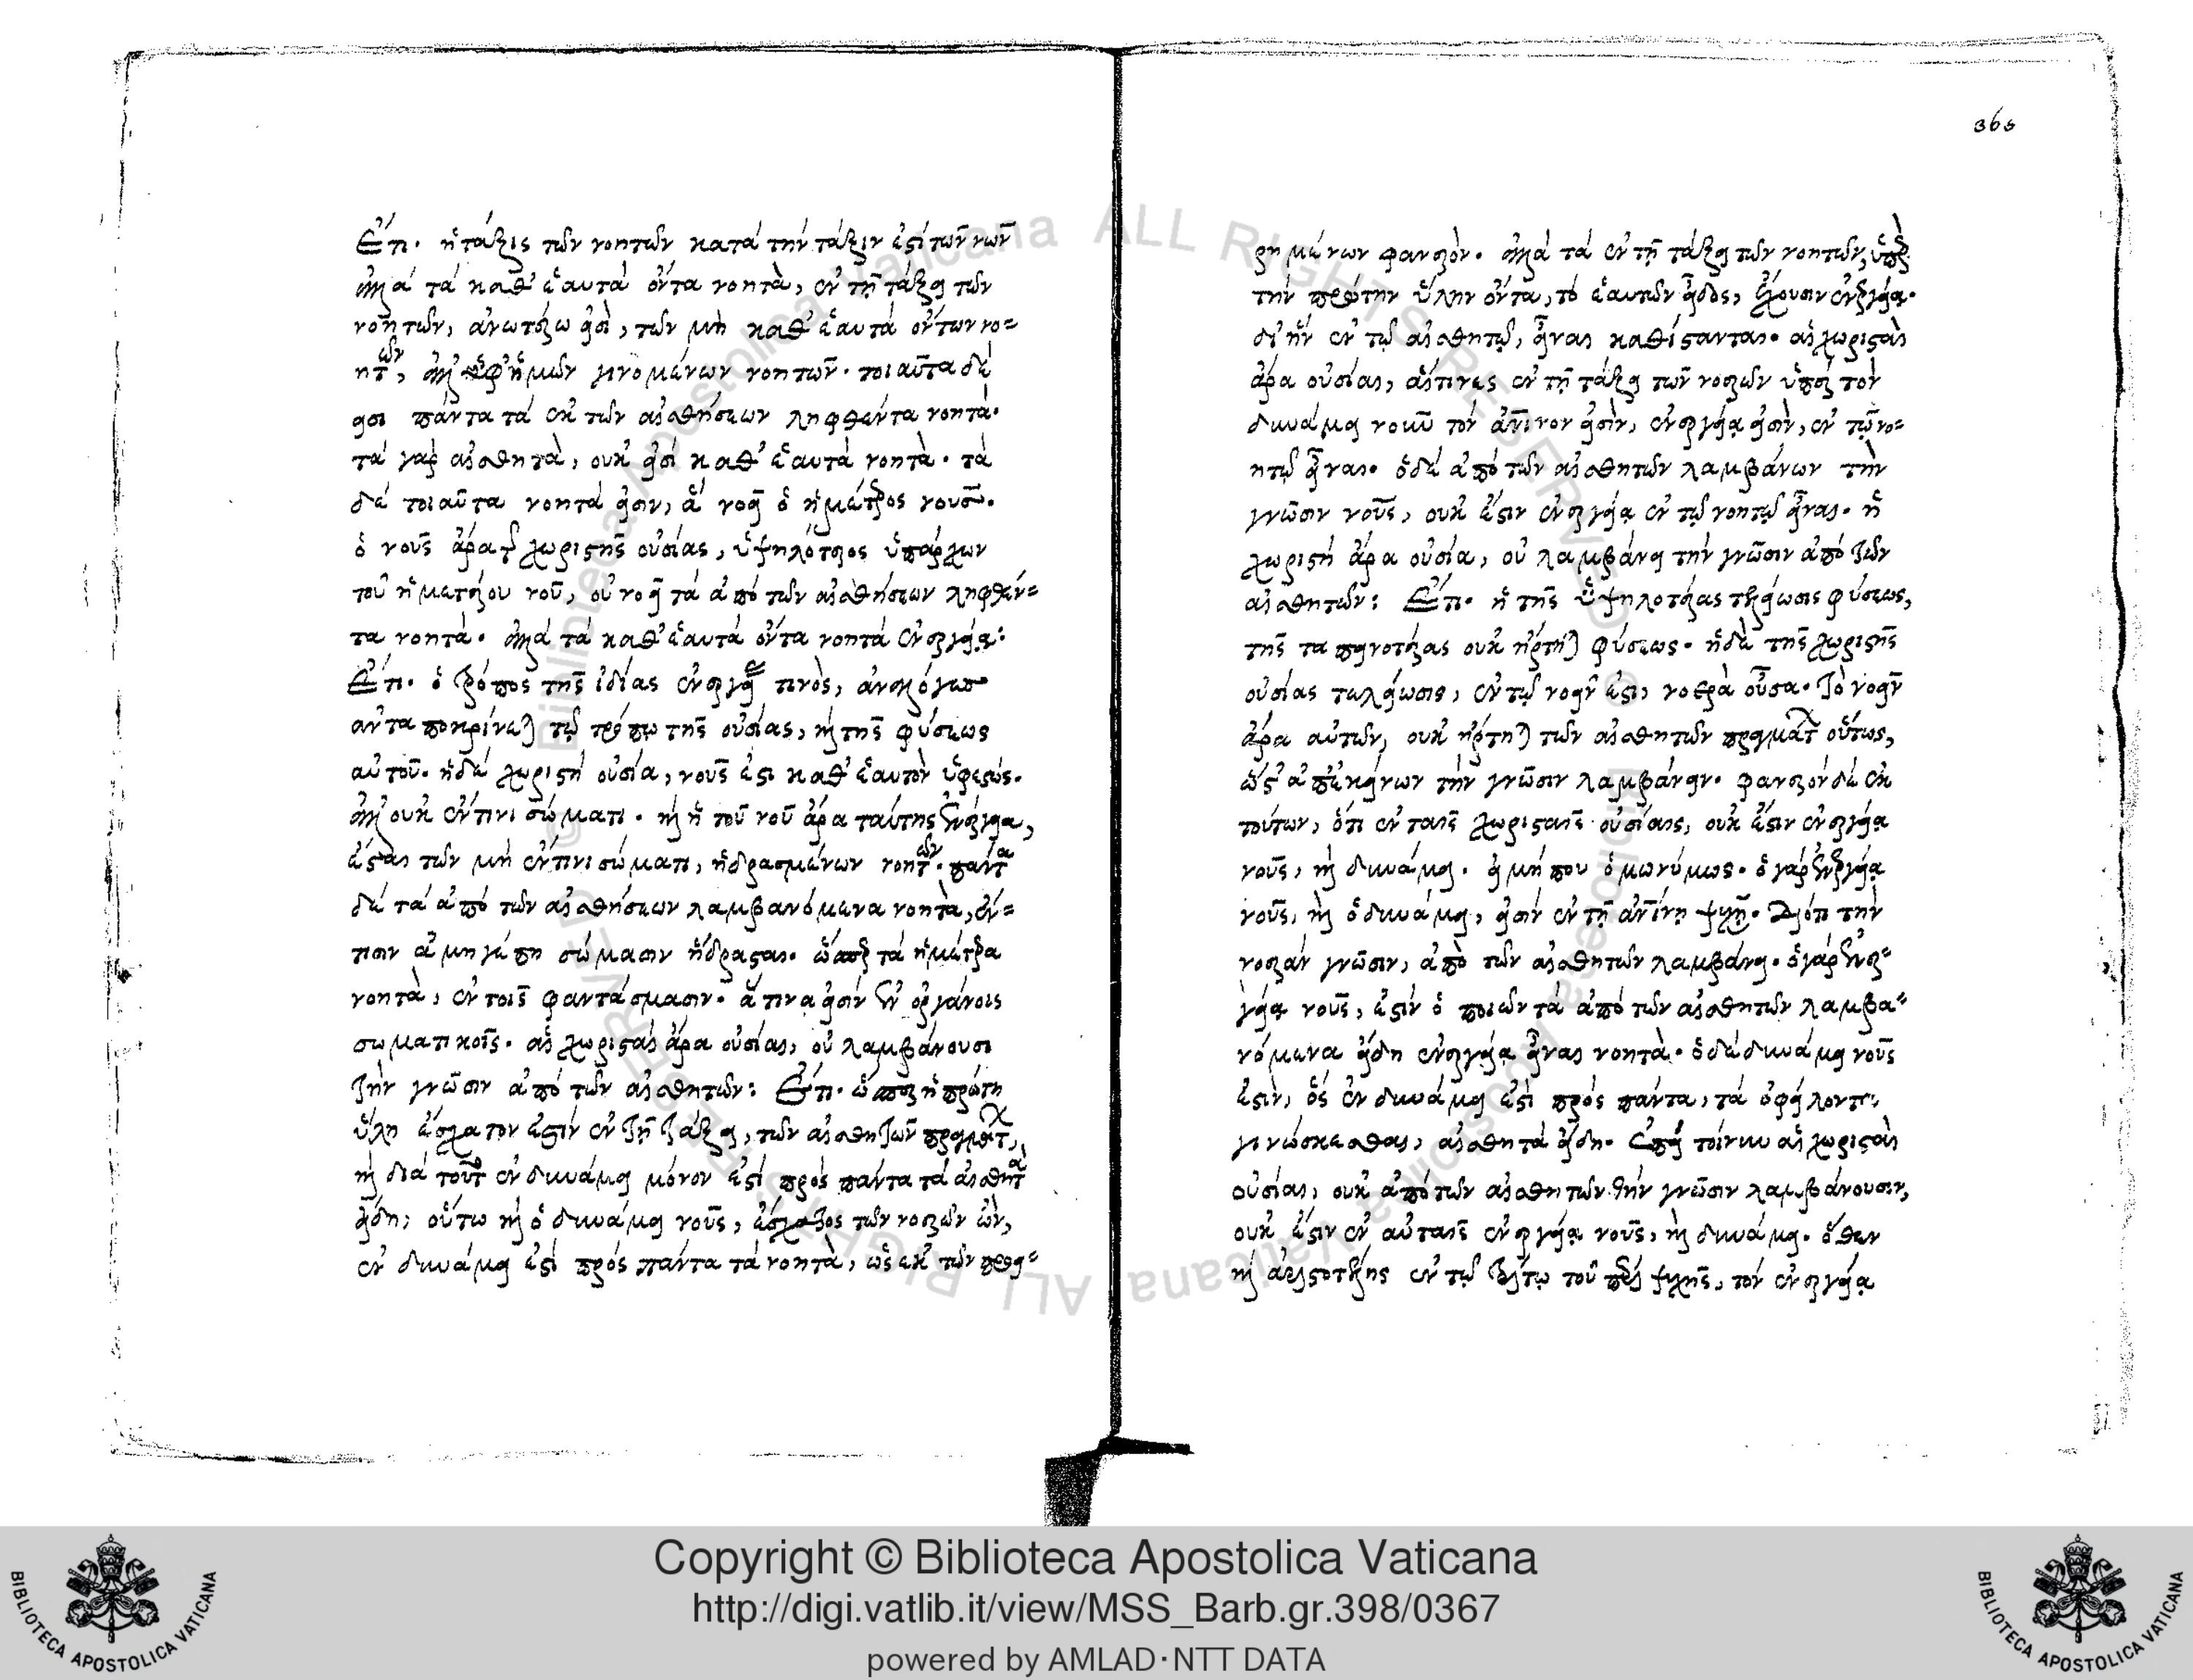 Ἔτι. ἡ τάξις τῶν νοητῶν κατὰ τὴν τάξιν ἐστὶ τῶν νῶν
ἀλλὰ τὰ καθ' ἑαυτὰ ὄντα νοητὰ, ἐν τῇ τάξει τῶν
νοητῶν, ἀνωτέρω εἰσὶ, τῶν μὴ καθ' ἑαυτὰ ὄντων νο=
ητῶν, ἀλλ' ὑφ' ἡμῶν γινομένων νοητῶν. τοιαῦτα δέ
εἰσι πάντα τὰ ἐκ τῶν αἰσθήσεων ληφθέντα νοητά.
τὰ γὰρ αἰσθητὰ, οὐκ εἰσὶ καθ' ἑαυτὰ νοητὰ. τὰ
δὲ τοιαῦτα νοητά εἰσιν, ἃ νοεῖ ὁ ἡμέτερος νοῦς.
ὁ νοῦς ἄρα τῆς χωριστῆς οὐσίας, ὑψηλότερος ὑπάρχων
τοῦ ἡμετέρου νοῦ, οὐ νοεῖ τὰ ἀπὸ τῶν αἰσθήσεων ληφθέν=
τα νοητὰ. ἀλλὰ τὰ καθ' ἑαυτὰ ὄντα νοητὰ ἐνεργείᾳ:
Ἔτι. ὁ τρόπος τῆς ἰδίας ἐνεργείας τινὸς, ἀναλόγως
ἀνταποκρίνεται τῷ τρόπῳ τῆς οὐσίας, καὶ τῆς φύσεως
αὐτοῦ. ἡ δὲ χωριστὴ οὐσία, νοῦς ἐστι καθ' ἑαυτὸν ὑφεστώς.
ἀλλ' οὐκ ἔν τινι σώματι. καὶ ἡ τοῦ νοῦ ἄρα ταύτης ἐνέργεια,
ἔσται τῶν μὴ ἔν τινι σώματι, ἡδρασμένων νοητῶν. πάντα
δὲ τὰ ἀπὸ τῶν αἰσθήσεων λαμβανόμενα νοητὰ, ἔν=
τισιν ἀμηγέπη σώμασιν ἥδρασται. ὥσπερ τὰ ἡμέτερα
νοητὰ, ἐν τοῖς φαντάσμασιν. ἅτινα εἰσὶν ἐν ὀργάνοις
σωματικοῖς. αἱ χωρισταὶ ἄρα οὐσίαι, οὐ λαμβάνουσι
τὴν γνῶσιν ἀπὸ τῶν αἰσθητῶν: Ἔτι. ὥσπερ ἡ πρώτη
ὕλη ἔσχατον ἐστὶν ἐν τῇ τάξει, τῶν αἰσθητῶν πραγμάτων,
καὶ διὰ τοῦτο ἐν δυνάμει μόνον ἐστὶ πρὸς πάντα τὰ αἰσθητὰ
εἴδη, οὕτω καὶ ὁ δυνάμει νοῦς, ἔσχατος τῶν νοερῶν ὢν,
ἐν δυνάμει ἐστὶ πρὸς πάντα τὰ νοητὰ, ὡς ἐκ τῶν προει=
ρημένων φανερὸν. ἀλλὰ τὰ ἐν τῇ τάξει τῶν νοητῶν, ὑπὲρ
τὴν πρώτην ὕλην ὄντα, τὸ ἑαυτῶν εἶδος, ἔχουσιν ἐνεργείᾳ.
δι' ἣν ἐν τῷ αἰσθητῷ, εἶναι καθίστανται. αἱ χωρισταὶ
ἄρα οὐσίαι, αἵτινες ἐν τῇ τάξει τῶν νοερῶν ὑπὲρ τὸν
δυνάμει νοῦν τὸν ἀνθρώπινον εἰσὶν, ἐνεργείᾳ εἰσὶν, ἐν τῷ νο=
ητῷ εἶναι. ὁ δὲ ἀπὸ τῶν αἰσθητῶν λαμβάνων τὴν
γνῶσιν νοῦς, οὐκ ἔστιν ἐνεργείᾳ ἐν τῷ νοητῷ εἶναι. ἡ
χωριστὴ ἄρα οὐσία, οὐ λαμβάνει τὴν γνῶσιν ἀπὸ τῶν
αἰσθητῶν: Ἔτι. ἡ τῆς ὑψηλοτέρας τελείωσις φύσεως,
τῆς ταπεινοτέρας οὐκ ἤρτηται φύσεως. ἡ δὲ τῆς χωριστῆς
οὐσίας τελείωσις, ἐν τῷ νοεῖν ἐστι, νοερὰ οὖσα. τὸ νοεῖν
ἄρα αὐτῶν, οὐκ ἤρτηται τῶν αἰσθητῶν πραγμάτων οὕτως,
ὥστ' ἀπ' ἐκείνων τὴν γνῶσιν λαμβάνειν. φανερὸν δὲ ἐκ
τούτων, ὅτι ἐν ταῖς χωρισταῖς οὐσίαις, οὐκ ἔστιν ἐνεργείᾳ
νοῦς, καὶ δυνάμει. εἰ μή που ὁμωνύμως. ὁ γὰρ ἐνεργείᾳ
νοῦς, καὶ ὁ δυνάμει, εἰσὶν ἐν τῇ ἀνθρωπίνῃ ψυχῇ. Διότι τὴν
νοερὰν γνῶσιν, ἀπὸ τῶν αἰσθητῶν λαμβάνει. ὁ γὰρ ἐνερ=
γείᾳ νοῦς, ἐστὶν ὁ ποιῶν τὰ ἀπὸ τῶν αἰσθητῶν λαμβα=
νόμενα εἴδη ἐνεργείᾳ εἶναι νοητὰ. ὁ δὲ δυνάμει νοῦς
ἐστὶν, ὃς ἐν δυνάμει ἐστὶ πρὸς πάντα, τὰ ὀφείλοντα
γινώσκεσθαι, αἰσθητὰ εἴδη. Ἐπεὶ τοίνυν αἱ χωρισταὶ
οὐσίαι, οὐκ ἀπὸ τῶν αἰσθητῶν τὴν γνῶσιν λαμβάνουσιν,
οὐκ ἔστιν ἐν αὐταῖς ἐνεργείᾳ νοῦς, καὶ δυνάμει. ὅθεν
καὶ ἀριστοτέλης ἐν τῷ τρίτῳ τοῦ περὶ ψυχῆς, τὸν ἐνεργείᾳ
Copyright © Biblioteca Apostolica Vaticana
http://digi.vatlib.it/view/MSS_Barb.gr.398/0367
powered by AMLAD·NTT DATA
BIBLIOTECA APOSTOLICA VATICANA
BIBLIOTECA APOSTOLICA VATICANA